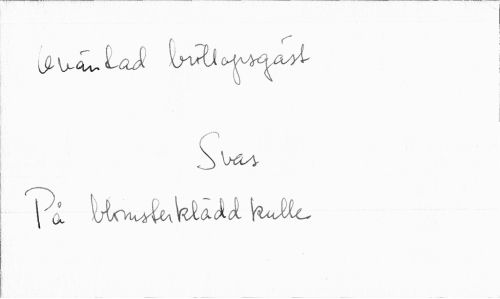 Oväntad bröllopsgäst
Svas
På blomsterklädd kulle